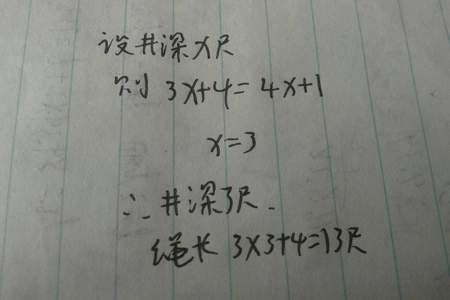 设井深x尺
则 3x+4=4x+1
x=3
∴井深3尺.
绳长 3×3+4=13尺